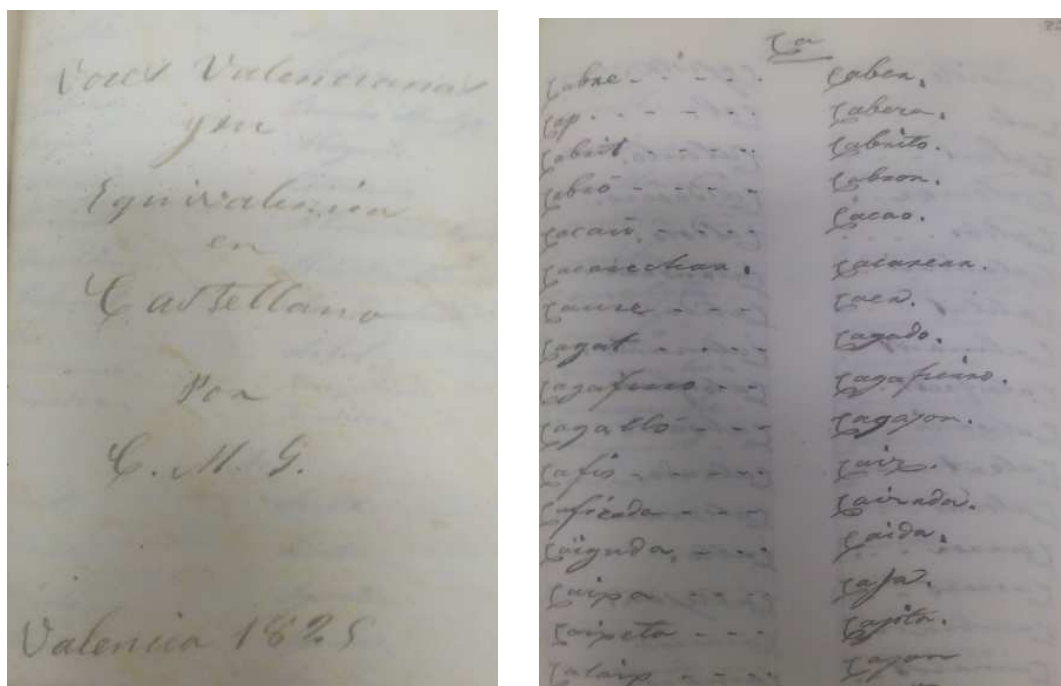 Voces Valencianas
y su
Equivalencia
en
Castellano
Por
C. M. G.
Valencia 1825
Ca
Cabre - - - - - Caber.
Cap - - - - - Cabeza.
Cabrit - - - - - Cabrito.
Cabró - - - - - Cabron.
Cacau - - - - Cacao.
Cacarechar. Cacarear.
Caure - - - Caer.
Cagat - - - - - Cagado.
Cagafierro - - - Cagafierro.
Cagalló - - - - Cagajon.
Cafis - - - - - Caiz.
Cafizada - - - - Caizada.
Caiguda - - - - Caida.
Caixa - - - - Caja.
Caixeta - - - Cajita.
Calaix - - - - Cajon